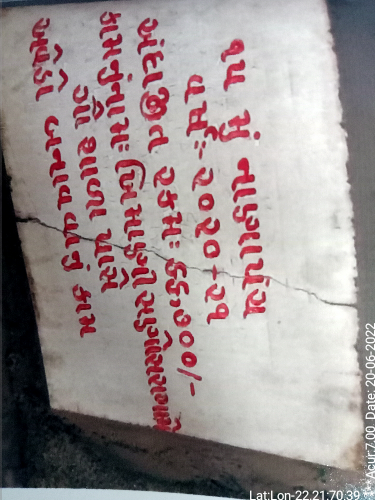 ૧૫ મું નાણાપંચ
વર્ષ:- ૨૦૨૦-૨૧
અંદાજીત રકમઃ ૬૬,૩૦૦/-
કામનું નામઃ
ગૌ શાળા પાસે
અવેડો બનાવવાનું કામ
Lat:Lon-22.21:70.39
**Acur:7.00 Date: 20-06-2022